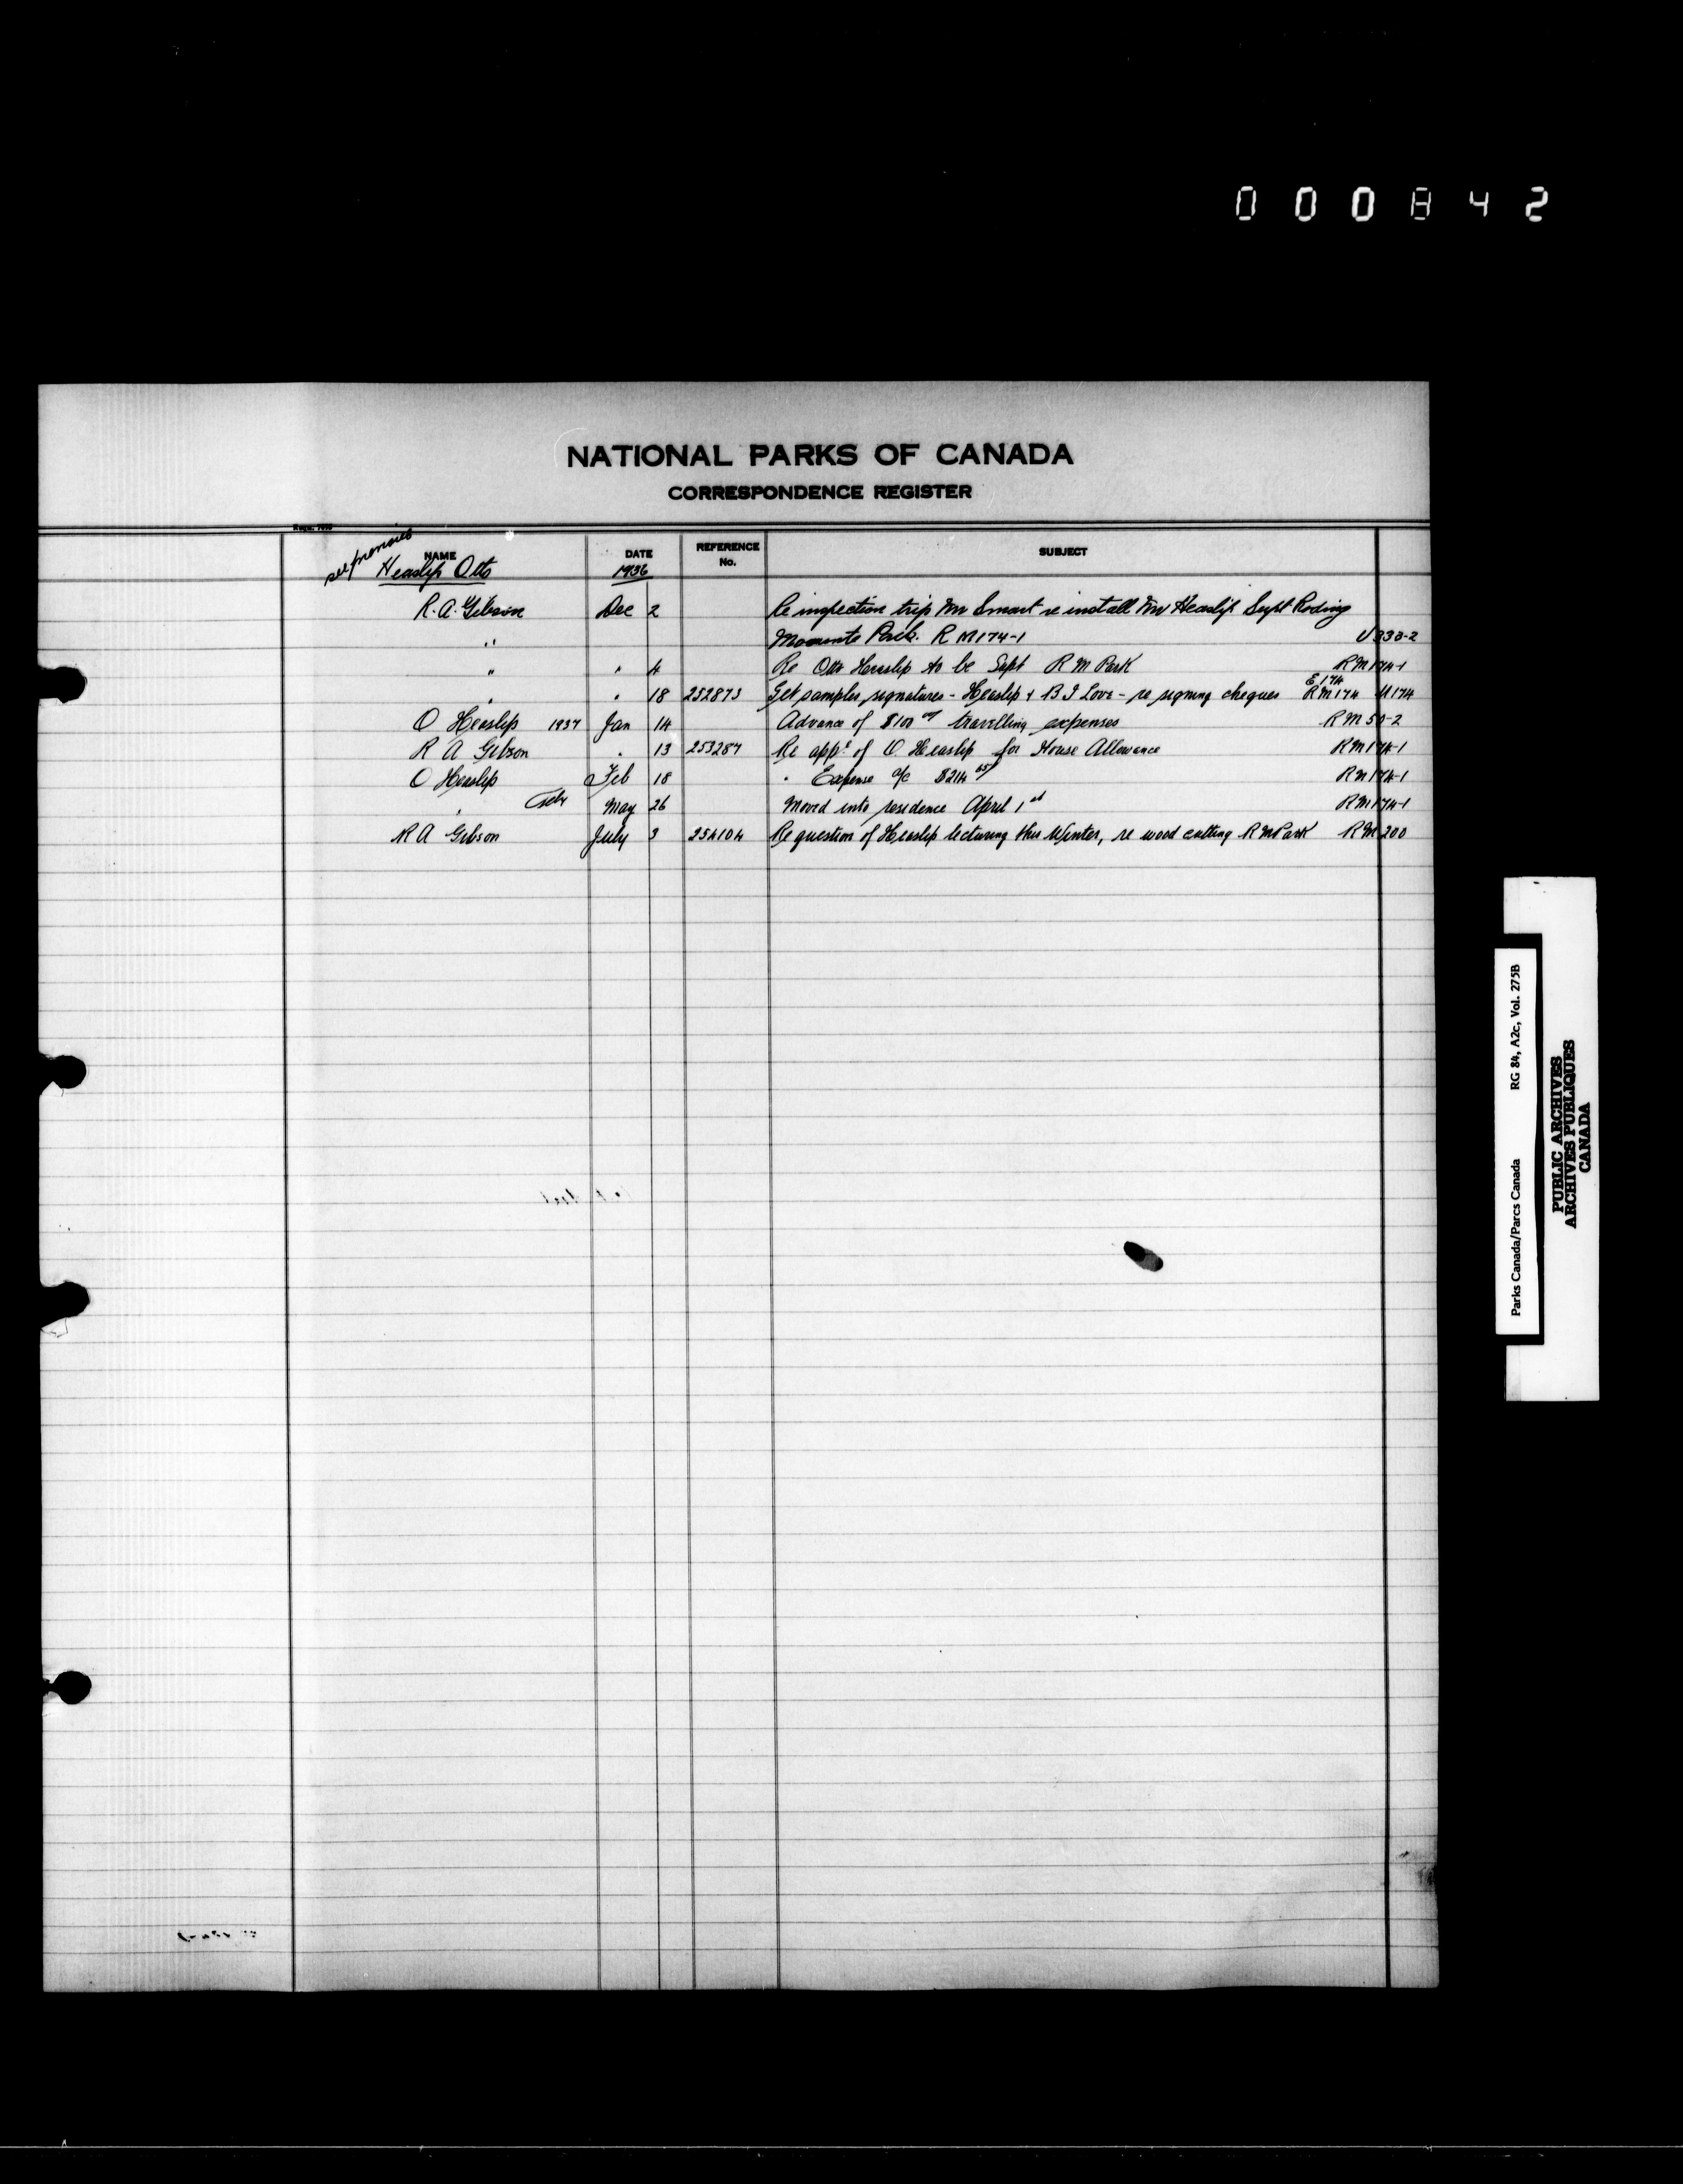 000842
NATIONAL PARKS OF CANADA
CORRESPONDENCE REGISTER
NAME DATE REFERENCE No. SUBJECT
Heaslip Otto 1936
R. A. Gibson Dec 2 Re inspection trip Mr Smart re install Mr Heaslip Supt Riding
" Mounts Park. R M174-1 U330-2
" " 4 Re Otto Heaslip to be Supt R M Park RM174-1
E174
" " 18 252873 Get samples signatures - Heaslip & B I Love - re signing cheques RM174 U174
O Heaslip 1937 Jan 14 Advance of $100 travelling expenses RM50-2
R A Gibson " 13 253287 Re app. of O Heaslip for House Allowance RM174-1
O Heaslip Feb 18 " Expense a/c $214 65 RM174-1
" May 26 Moved into residence April 1st RM174-1
R A Gibson July 3 254104 Re question of Heaslip lecturing this Winter, re wood cutting R M Park RM200
Parks Canada/Parcs Canada RG 84, A2c, Vol. 275B
PUBLIC ARCHIVES
ARCHIVES PUBLIQUES
CANADA